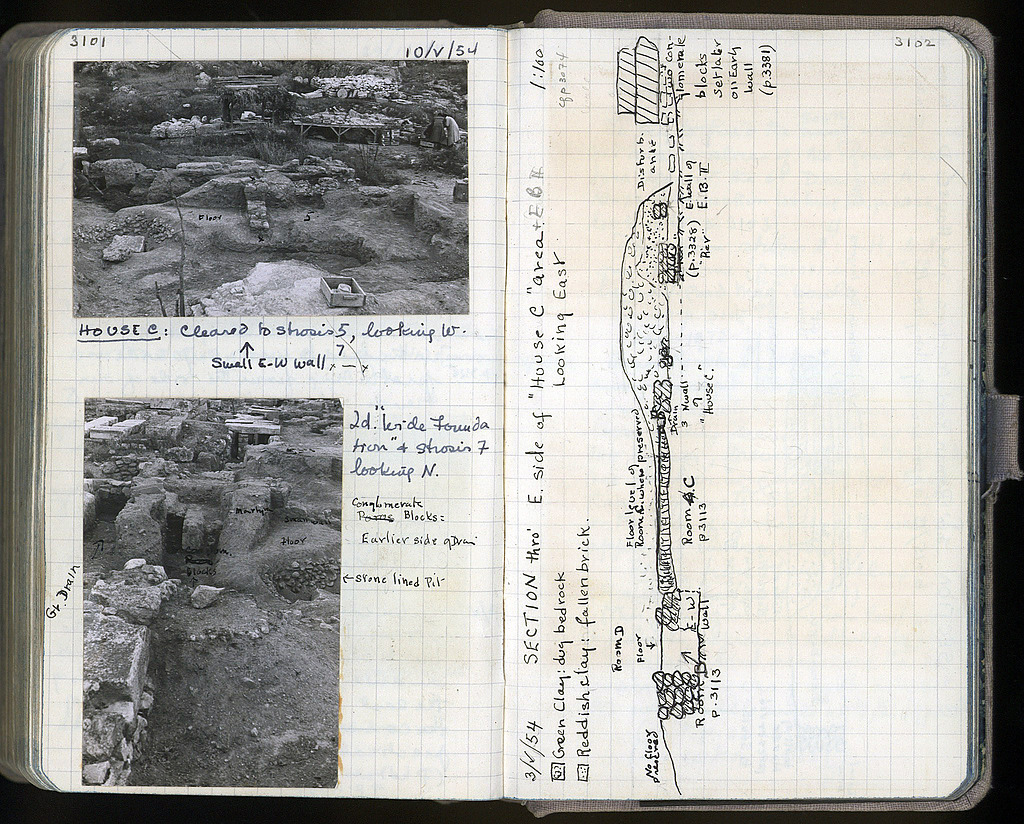 3101
10/V/54
Floor
5
HOUSE C: Cleared to strosis 5, looking W.
↑ 7
Small E-W wall x — x
2d. "Wide Founda
tion" & strosis 7
looking N.
Conglomerate
Blocks:
Earlier side of Drain
← stone lined Pit
Gt. Drain
Floor
blocks
3102
3/V/54 SECTION thro' E. side of "House C" area + E B II 1:100
Looking East
cf p 3074
Green Clay: dug bedrock
Reddish clay: fallen brick.
No floor
preserved
Room D
Floor
Floor level of
Room where preserved
Disturb.
ance
Room
p. 3113
E-W
wall
Room C
p 3113
Drain
3 N wall
of
"House C."
(p. 3328)
"Pier"
E. wall of
E. B. II
Two con-
glomerate
blocks
set later
on Early
wall
(p. 3381)